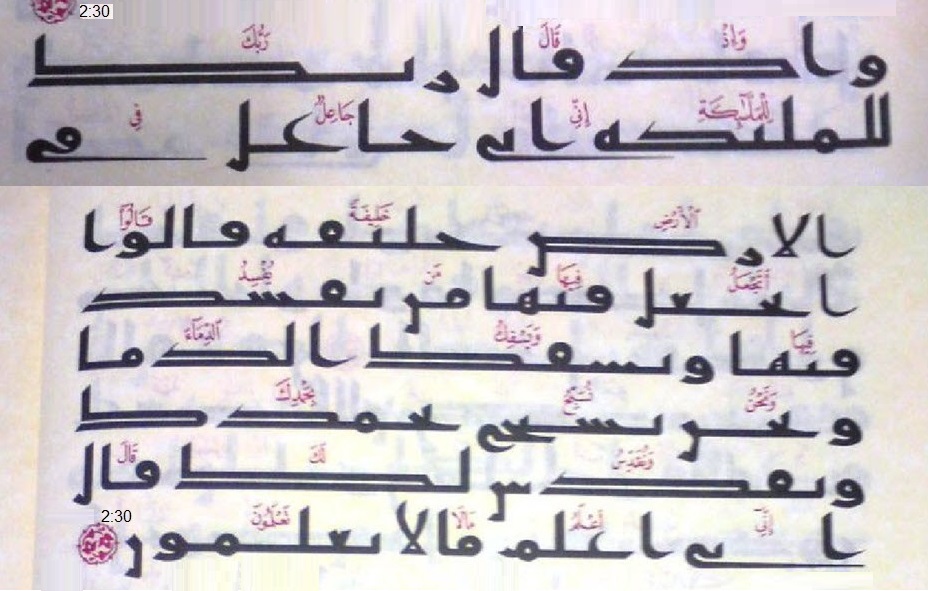 2:30
وَإِذْ قَالَ رَبُّكَ
واد قال ربك
لِلْمَلَٰٓئِكَةِ إِنِّي جَاعِلٌ فِي
للملىكه انى حاعل فى
ٱلْأَرْضِ خَلِيفَةً قَالُوٓا۟
الارص حليفه قالوا
أَتَجْعَلُ فِيهَا مَن يُفْسِدُ
اىحعل فىها مں ىفسد
فِيهَا وَيَسْفِكُ ٱلدِّمَآءَ
فىها وىسفك الدما
وَنَحْنُ نُسَبِّحُ بِحَمْدِكَ
وىحں ىسىح ىحمدك
وَنُقَدِّسُ لَكَ قَالَ
وىقدس لك قال
إِنِّيٓ أَعْلَمُ مَا لَا تَعْلَمُونَ
انى اعلم ما لا ىعلموں
2:30